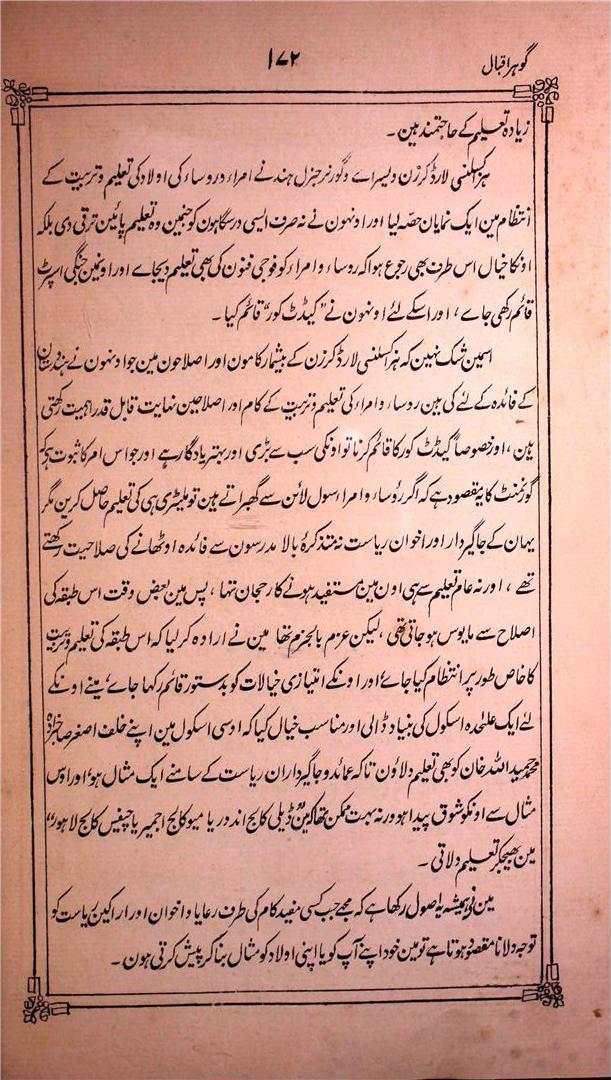 گوہر اقبال
۱۷۲
زیادہ تعلیم کے حاجتمند ہین ۔
ہز اکسلنسی لارڈ کرزن ویسراے وگورنر جنرل ہند نے امراء و روساء کی اولاد کی تعلیم و تربیت کے
انتظام مین ایک نمایان حصّہ لیا اور اونہون نے نہ صرف ایسی درسگاہون کو جنمین وہ تعلیم پائین ترقی دی بلکہ
اونکا خیال اس طرف بھی رجوع ہوا کہ روساء و امراء کو فوجی فنون کی بھی تعلیم دیجاے اور اونمین جنگی اسپرٹ
قائم رکھی جاے ، اور اسکے لئے اونہون نے ”کیڈٹ کور“ قائم کیا ۔
اسمین شک نہین کہ ہز اکسلنسی لارڈ کرزن کے بیشمار کامون اور اصلاحون مین جو اونہون نے ہندوستان
کے فائدہ کے لئے کی ہین روساء و امراء کی تعلیم و تربیت کے کام اور اصلاحین نہایت قابل قدر اہمیت رکھتی
ہین ، اور خصوصاً کیڈٹ کور کا قائم کرنا تو اونکی سب سے بڑی اور بہتر یادگار ہے اور جو اس امر کا ثبوت ہے کہ
گورنمنٹ کا یہ مقصود ہے کہ اگر رُوساء و امرا سول لائن سے گھبراتے ہین تو ملیٹری ہی کی تعلیم حاصل کرین مگر
یہان کے جاگیردار اور اخوان ریاست نہ متذکرۂ بالا مدرسون سے فائدہ اوٹھانے کی صلاحیت رکھتے
تھے ، اور نہ عام تعلیم سے ہی اون مین مستفید ہونے کا رجحان تھا ، پس مین بعض وقت اس طبقہ کی
اصلاح سے مایوس ہو جاتی تھی ، لیکن عزم بالجزم تھا مین نے ارادہ کر لیا کہ اس طبقہ کی تعلیم و تربیت
کا خاص طور پر انتظام کیا جاے اور اونکے امتیازی خیالات کو بدستور قائم رکھا جاے ، مینے اونکے
لئے ایک علٰحدہ اسکول کی بنیاد ڈالی اور مناسب خیال کیا کہ اوسی اسکول مین اپنے خلف اصغر صاحبزادہ
محمد حمید اللہ خان کو بھی تعلیم دلاؤن تاکہ عمائد و جاگیرداران ریاست کے سامنے ایک مثال ہو ، اور اوس
مثال سے اونکو شوق پیدا ہو ورنہ بہت ممکن تھا کہ مین ”ڈیلی کالج اندور یا میو کالج اجمیر یا چیفس کالج لاہور“
مین بھیجکر تعلیم دلاتی ۔
مین نے ہمیشہ یہ اصول رکھا ہے کہ مجھے جب کسی مفید کام کی طرف رعایا و اخوان اور اراکین ریاست کو
توجہ دلانا مقصود ہوتا ہے تو مین خود اپنے آپ کو یا اپنی اولاد کو مثال بنا کر پیش کرتی ہون ۔